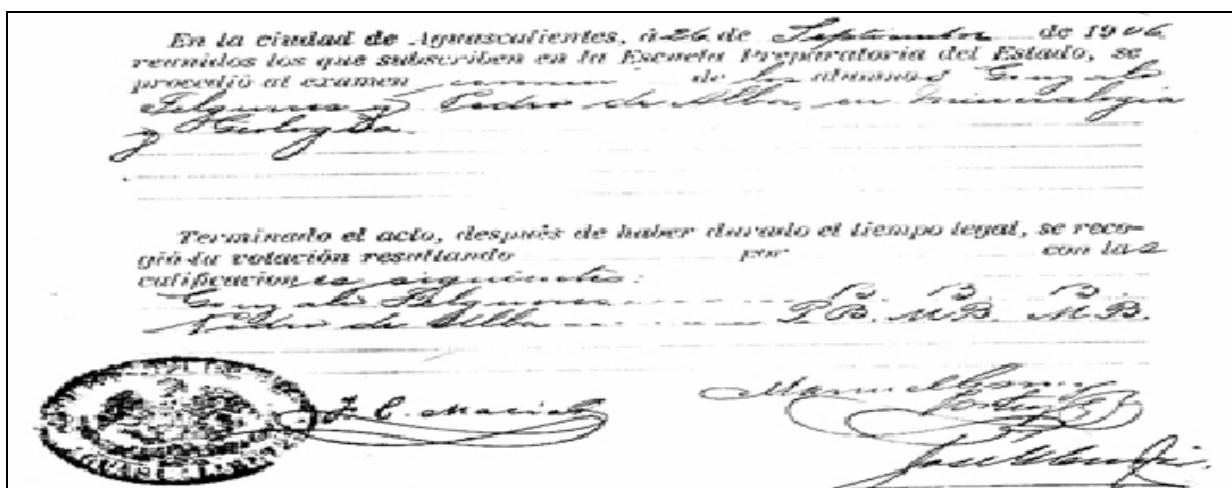 En la ciudad de Aguascalientes, á 26 de Septiembre de 1906
reunidos los que subscriben en la Escuela Preparatoria del Estado, se
procedió al examen comun de los alumnos Gonzalo
Felgueres y Pedro de Alba, en Mineralogia
y Geología.
Terminado el acto, después de haber durado el tiempo legal, se reco-
gió la votación resultando por con las
calificaciones siguientes:
Gonzalo Felgueres B. B. B.
Pedro de Alba P.B. M.B. M.B.
J. C. Macias Manuel Gomez